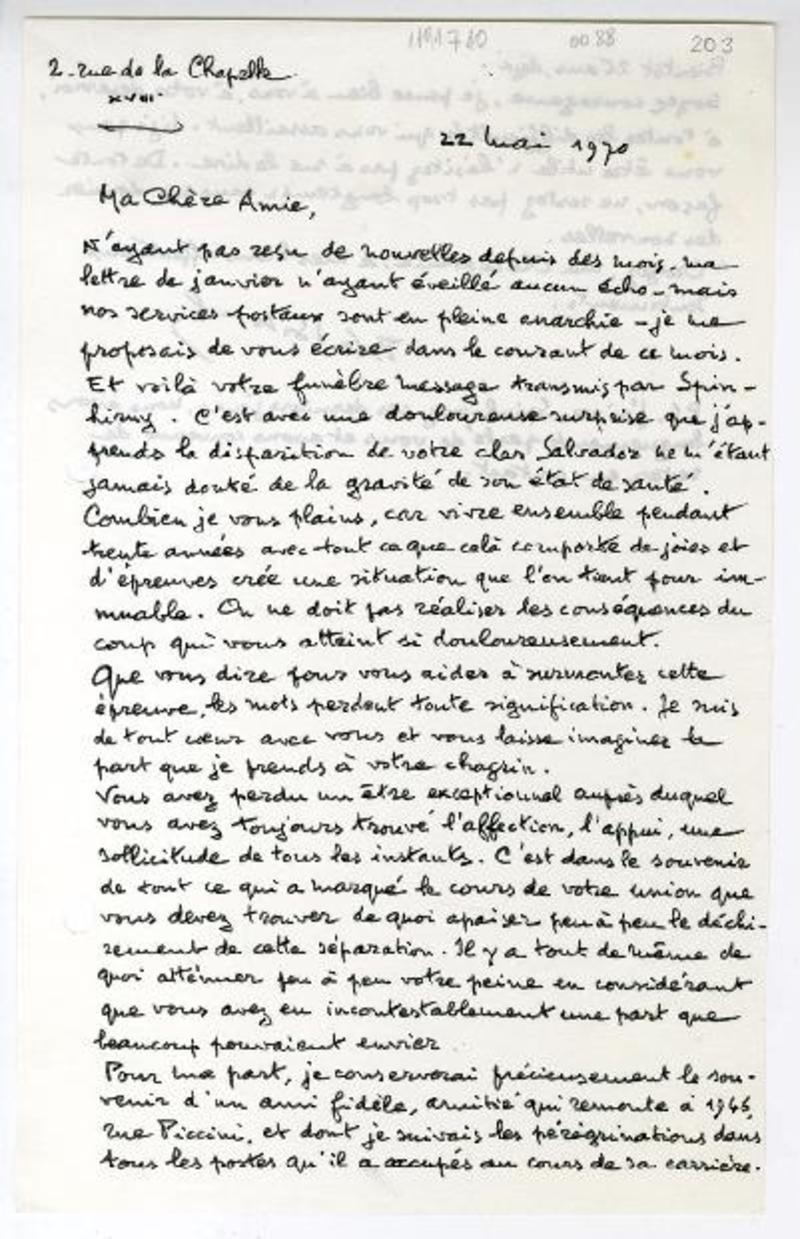 1191760 0088 203
2. rue de la Chapelle
XVIII
22 Mai 1970
Ma Chère Amie,
N'ayant pas reçu de nouvelles depuis des mois, ma
lettre de janvier n'ayant éveillé aucun écho - mais
nos services postaux sont en pleine anarchie - je me
proposais de vous écrire dans le courant de ce mois.
Et voilà votre funèbre message transmis par Spin-
hirny. C'est avec une douloureuse surprise que j'ap-
prends la disparition de votre cher Salvador ne m'étant
jamais douté de la gravité de son état de santé.
Combien je vous plains, car vivre ensemble pendant
trente années avec tout ce que celà comporte de joies et
d'épreuves crée une situation que l'on tient pour im-
muable. On ne doit pas réaliser les conséquences du
coup qui vous atteint si douloureusement.
Que vous dire pour vous aider à surmonter cette
épreuve, les mots perdent toute signification. Je suis
de tout cœur avec vous et vous laisse imaginer la
part que je prends à votre chagrin.
Vous avez perdu un être exceptionnel auprès duquel
vous avez toujours trouvé l'affection, l'appui, une
sollicitude de tous les instants. C'est dans le souvenir
de tout ce qui a marqué le cours de votre union que
vous devez trouver de quoi apaiser peu à peu le déchi-
rement de cette séparation. Il y a tout de même de
quoi atténuer peu à peu votre peine en considérant
que vous avez eu incontestablement une part que
beaucoup pouvaient envier.
Pour ma part, je conserverai précieusement le sou-
venir d'un ami fidèle, amitié qui remonte à 1946,
rue Piccini, et dont je suivais les pérégrinations dans
tous les postes qu'il a occupés au cours de sa carrière.